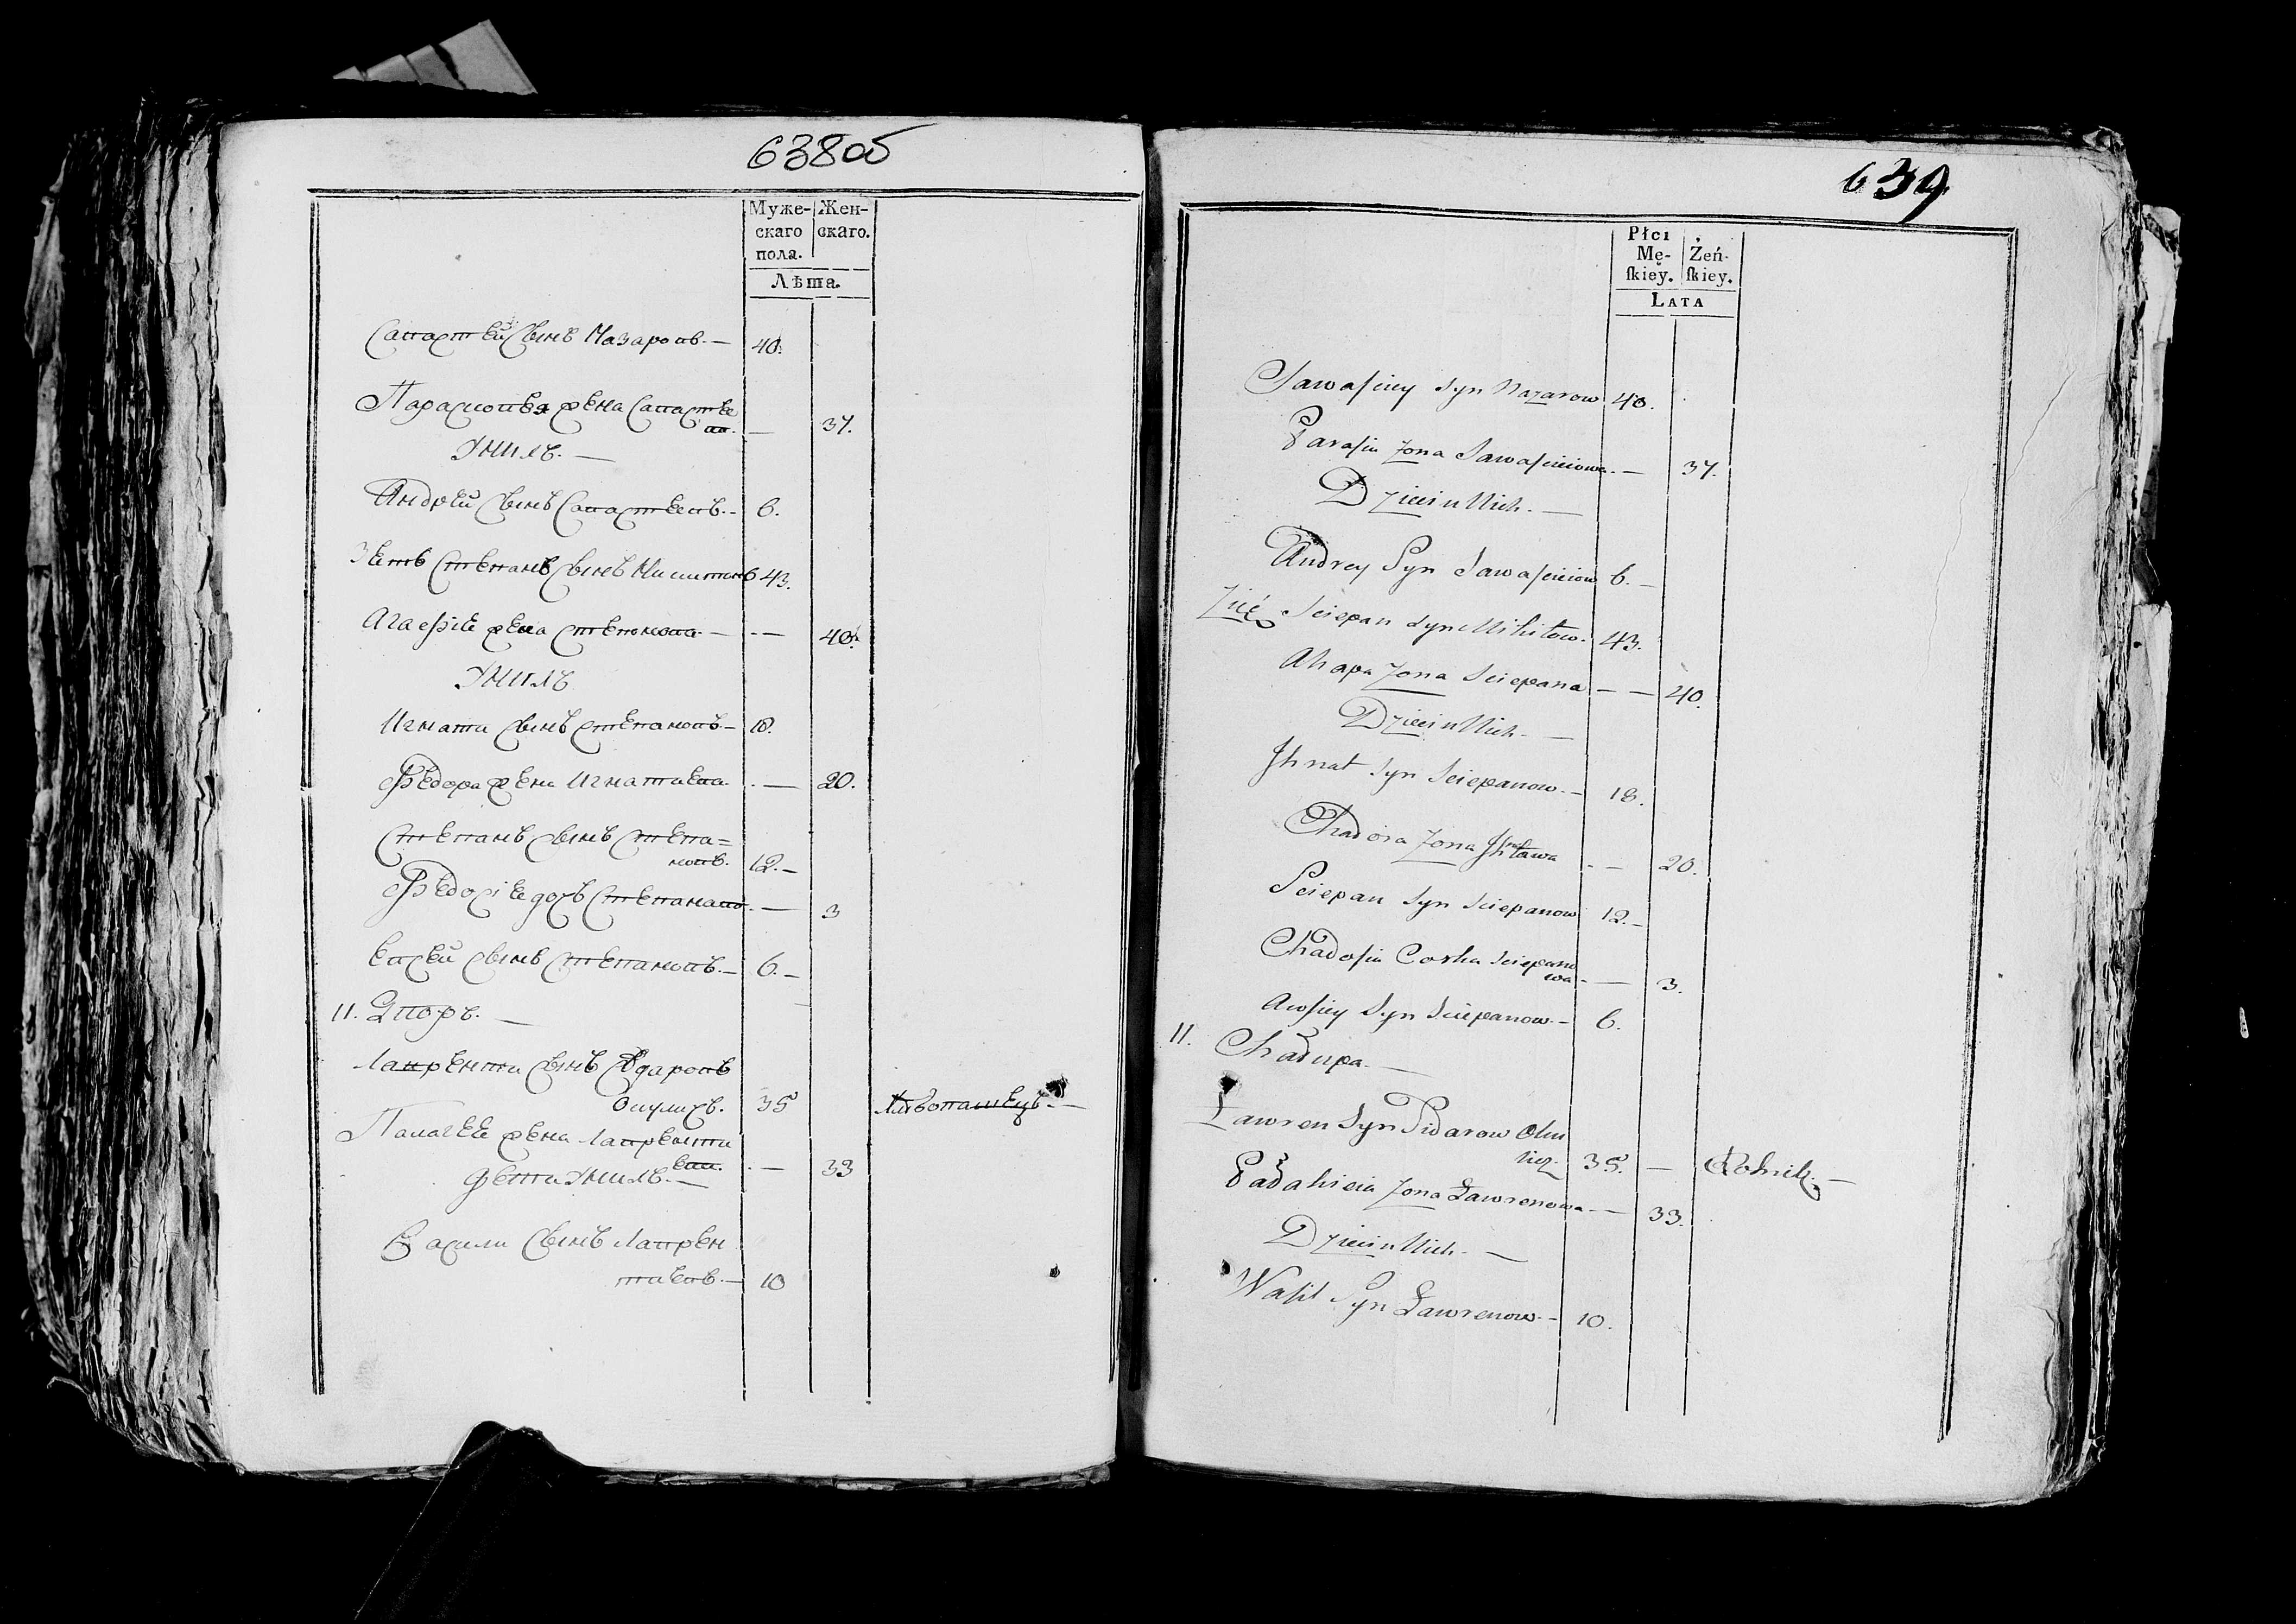 638об
Муже-
скаго
пола.
Жен-
скаго.
Лѣта.
Савастей Сынъ Назаровъ.— 40.
Парасковея жена Савастее
ва. — 37.
У нихъ. —
Андрей Сынъ Савастеевъ.— 6.
Зеть Степанъ Сынъ Микитинъ 43.
Агафіе жена Степанова.— — 40.
У нихъ
Игнати Сынъ Степановъ— 18.
Федора жена Игнатиева — 20.
Степанъ Сынъ Степа=
новъ. 12.—
Федосіе дочь Степанова — 3
Евсей Сынъ Степановъ.— 6.—
11. Двор.—
Лаврѣнти Сынъ Сидаровъ
35 Хлебопашецъ.—
Палагее жена Лаврѣнти
ева. — 33
дети У нихъ.—
Васили Сынъ Лаврѣн
тиевъ.— 10
639
Płci
Mę-
ſkiey.
Żeń-
ſkiey.
LATA
Sawaſciey Syn Nazarow 40.
Paraſia Zona Sawaſcieiowa.— 37.
Dzieci u Nich.—
Andrey Syn Sawaſcieiow 6.—
Zięć Sciepan Syn Mikitow. 43.
Ahapa Zona Sciepana — — 40.
Dzieci u Nich.—
Jhnat Syn Sciepanow.— 18.
Chadora Zona Jhnatawa — 20.
Sciepan Syn Sciepanow 12.—
Chadoſia Corka Sciepano
wa.— 3.
Awſiey Syn Sciepanow.— 6.
11. Chałupa.—
Ławren Syn Sidarow
35. — Rolnik.—
Pałahieia Zona Ławrenowa.— 33.
Dzieci u Nich.—
Waſil Syn Ławrenow.— 10.